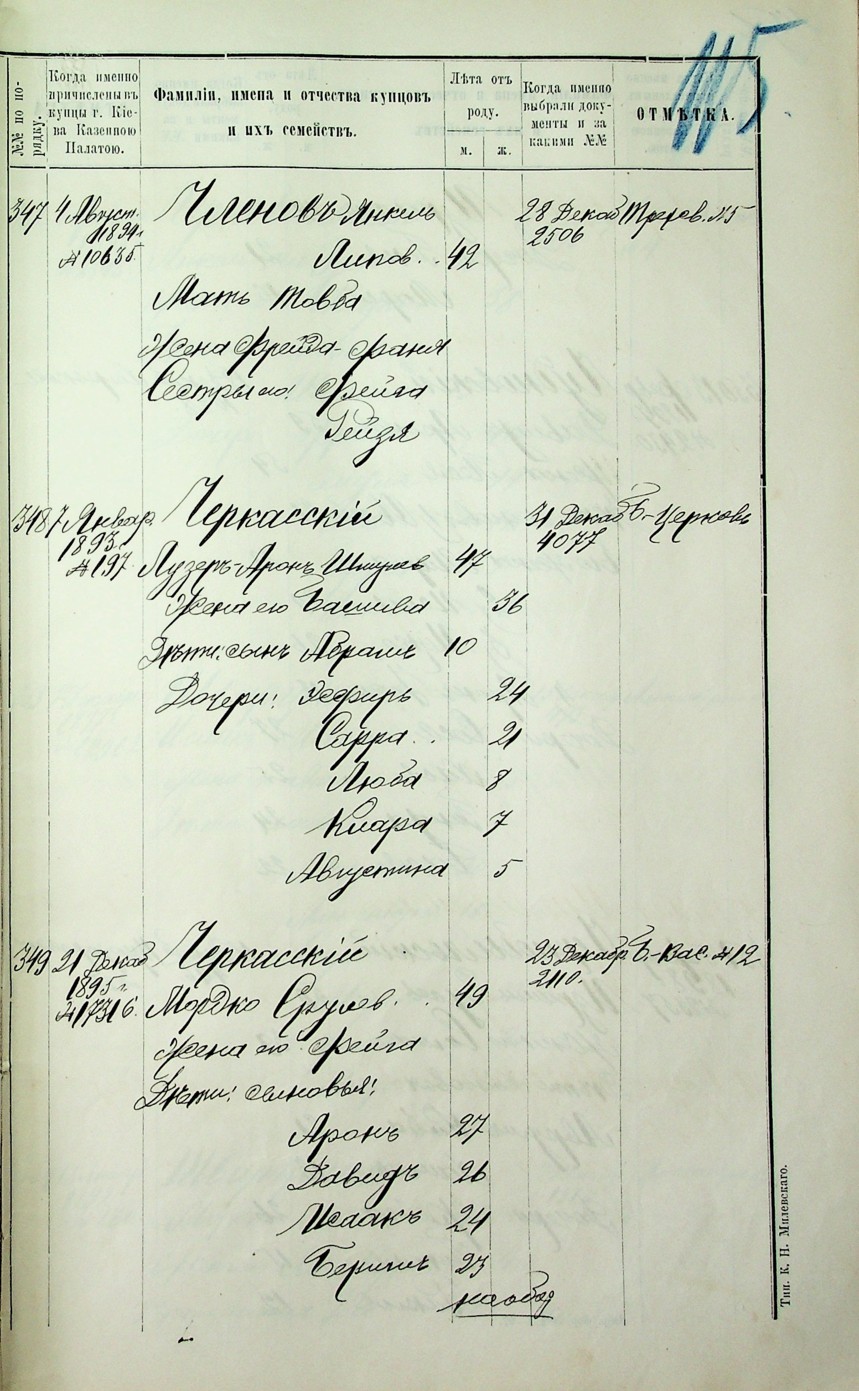 115
№№ по по-
рядку.
Когда именно
причислены въ
купцы г. Кіе-
ва Казенною
Палатою.
Фамиліи, имена и отчества купцовъ
и ихъ семействъ.
Лѣта отъ
роду.
м. ж.
Когда именно
выбрали доку-
менты и за
какими №№
ОТМѢТКА.
347 4 Август. Членовъ Янкель 28 Декаб №5
1894 г. 2506
№10635. Липов. . 42
Мать Товба
Жена Фрейда-Фаня
Сестры его: Фейга
Рейзя
348 7 Январ. Черкасскій 31 Декаб Б.-Церковь
1893 г. 4077
№197 Лузеръ-Аронъ Шмулев 47
Жена его Басшева 36
Дѣти: сынъ Абрамъ 10
Дочери: Эсфирь 24
Сарра . . 21
Люба 8
Клара 7
Августина 5
349 21 Декаб Черкасскій 23 Декабр Б.-Вас. №12
1895 г. 2110.
№17316 Мордко Срулев. . 49
Жена его Фейга
Дѣти: сыновья:
Аронъ 27
Давидъ 26
Исаакъ 24
Беришъ 23
на обор
Тип. К. Н. Милевскаго.